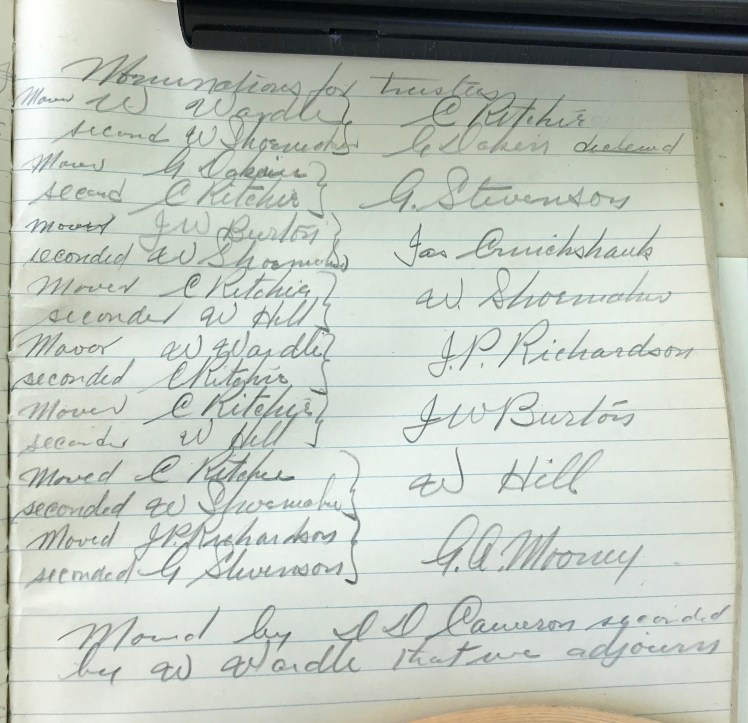 Nominations for trustees
Mover W Wardle } C Ritchie
second W Shoemaker G Dakin declined
Mover G Dakin }
second C Ritchie } G. Stevenson
Mover J W Burton }
seconded W Shoemaker Jas Cruickshank
Mover C Ritchie } W. Shoemaker
seconder W Hill
Mover W Wardle } J. P. Richardson
seconded C Ritchie
Mover C Ritchie } J W Burton
seconder W Hill
Moved C Ritchie } W Hill
seconded W Shoemaker
Moved J P. Richardson }
seconded G Stevenson } G. A. Mooney
Moved by D D Cameron seconded
by W Wardle that we adjourn